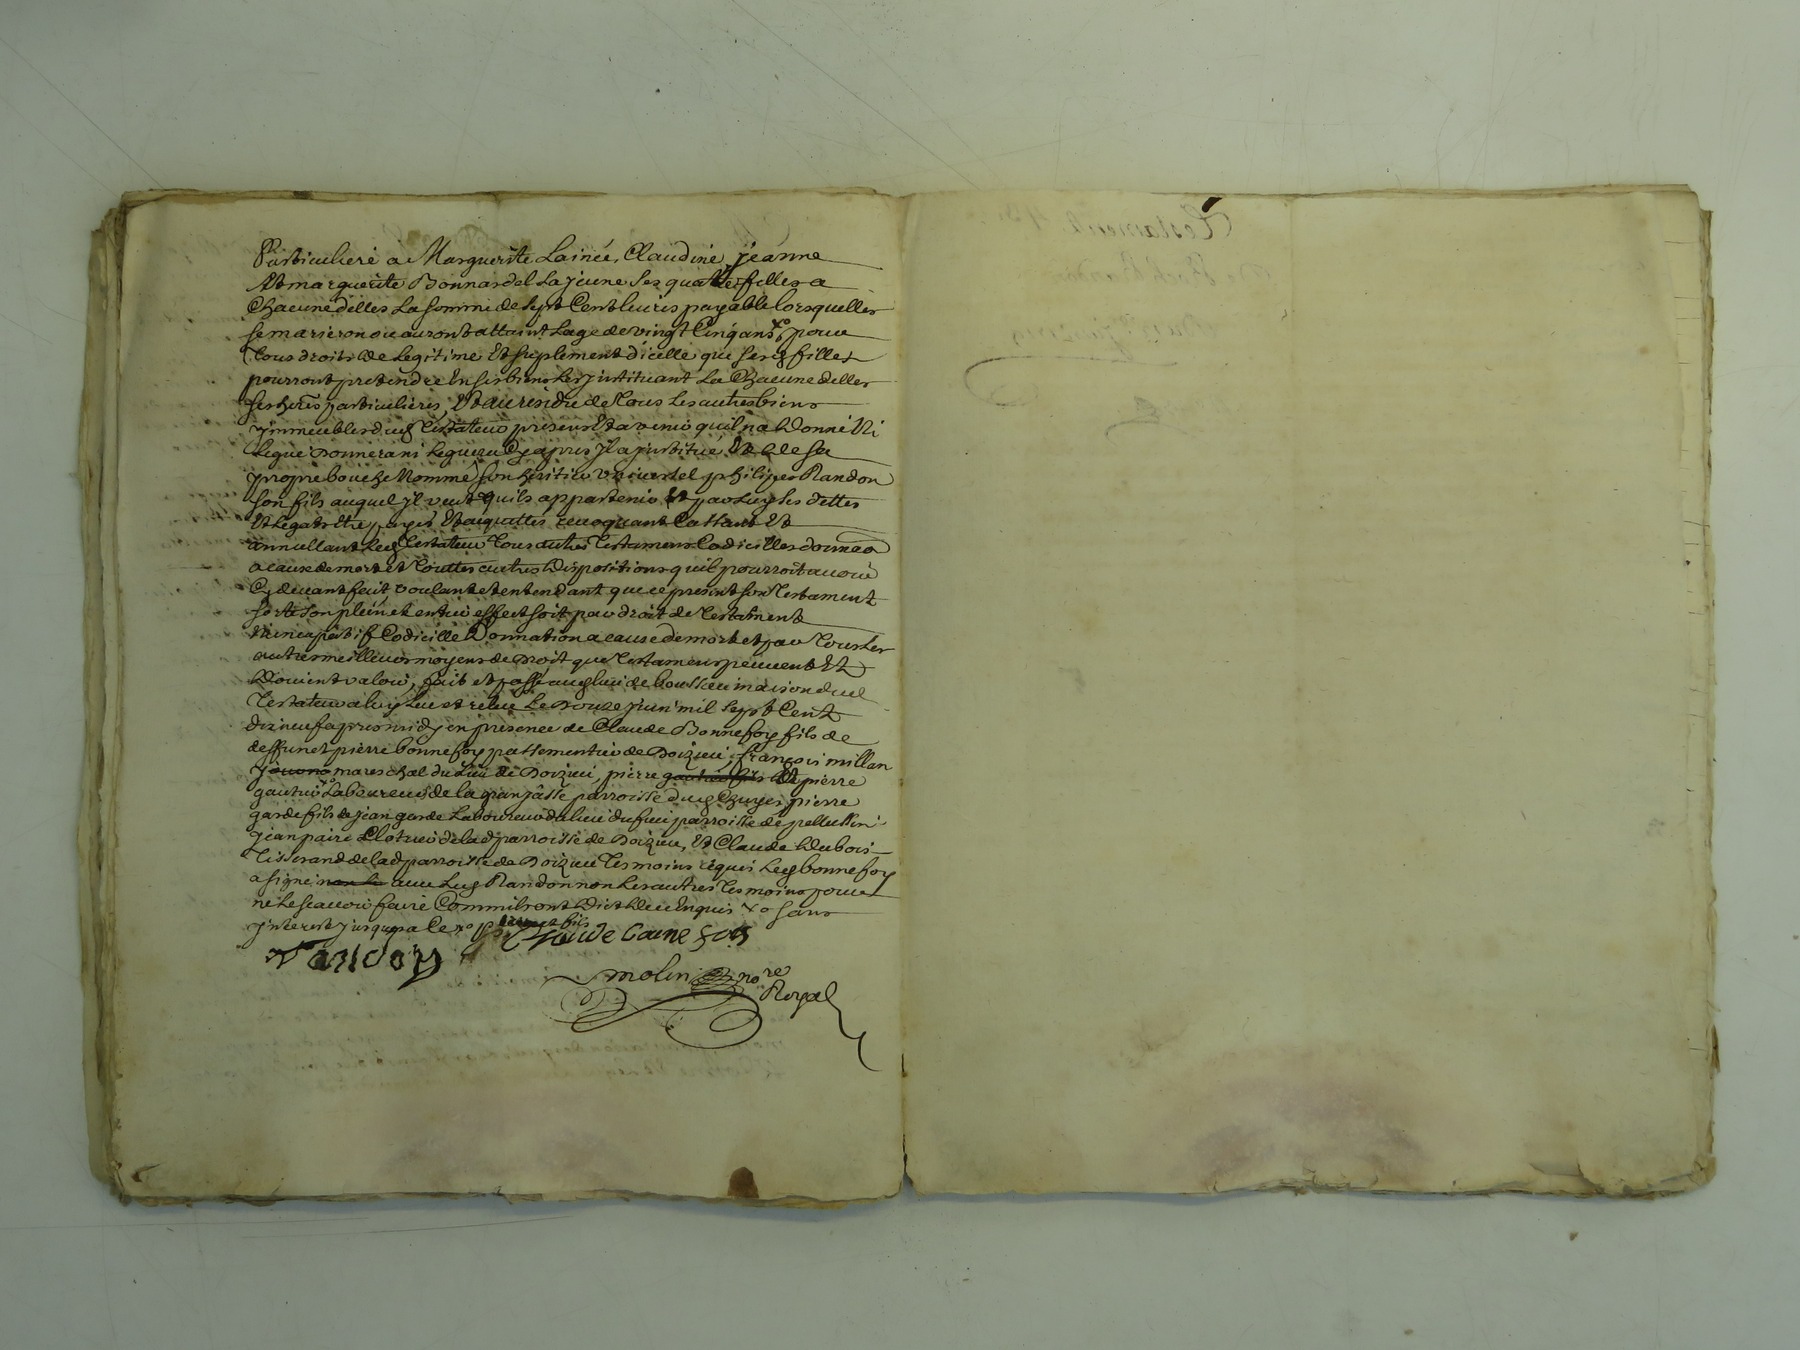 Particuliere a Marguerite Lainée, Claudine, jeanne
Et marguerite Bonnardel La jeune Ses quattre filles a
Chacune delles La somme de sept Cent livres payable lorsquelles
se marieron ou auront attaint Lage de vingt Cinq ans xo pour
Tous droits de Legitime Et suplement dicelle que ses filles
pourront pretendre En ses biens Les instituant La Chacune delles
ses heres particulieres, Et au residu de Tous Les autres biens
immeubles dud Testateur presens Et a venir quil na Donné Ni
Legué Donnera ni Leguera Cy apres Il a institué Et de sa
propre bouche Nommé son heritier Universel philipes Randon
son fils auquel jl veut quils appartenir Et par Luy ses dettes
Et Legats Etre payés Et aquittés revoquant Cassant Et
annullant Led Testateur Tous autres Testamens Codicilles donnaon
a cause de mort et Touttes autres Dispositions quil pourroit avoir
Cy devant fait, voulant et entendant que ce present son Testament
sorte son plein et entier effect soit par droit de Testament
Nuncupatif Codicille Donnation a cause de mort et par Tous Les
autres meilleurs moyens de Droit que Testamens peuvent Et
Doivent valoir, fait et passé aud lieu de maison dud
Testateur a luy Lue et relue Le Douze juin mil Sept Cent
dix neuf apres midy en presence de Claude Bonnefoy fils de
deffunct pierre bonnefoy passementier de Doizieu, françois millan
mareschal du Lieu de Doizieu, pierre Et pierre
gautier Laboureur de la parroisse dud pierre
garde fils a jean garde Laboureur du lieu du parroisse de pellussin
jean paire Clotrier de lad parroisse de Doizieu, Et Claude Dubois
Tisserand de lad parroisse de Doizieu Tesmoins requis Led bonnefoy
a signé avec Led Randon non Les autres Tesmoins pour
ne Le scavoir faire Comm ilsont Dict Deue Enquis xo sans
jnterest jusqua Ce xo
Randon
molin nore
Royal